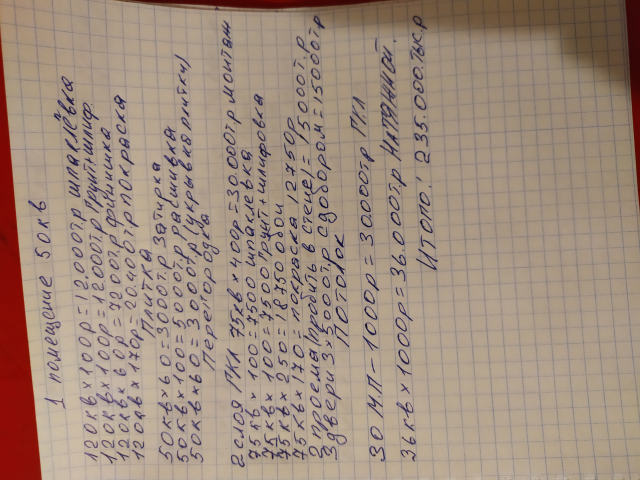 1 помещение 50кв
120кв х 100р = 12000т.р шпаклёвка
120кв х 100р = 12000т.р Грунт+шлиф
120кв х 60р = 7200т.р финишка
120кв х 170р = 20.400т.р покраска
Плитка
50кв х 60 = 3000т.р затирка
50кв х 100 = 5000т.р расшивка
50кв х 60 = 3.000т.р (укрывка плитки)
Перегородка
2 слоя ГКЛ 75кв х 400р = 30.000тр монтаж
75кв х 100 = 7500 шпаклевка
75кв х 100 = 7500 Грунт+шлифовка
75кв х 250 = 18750 обои
75кв х 170 = покраска 12750р
2 проема (пробить в стене) = 15000т.р
3 двери 3 х 5000т.р с добором = 15000тр
Потолок
30 МП - 1000р = 30.000тр ГКЛ
36кв х 1000р = 36.000т.р НАТЯЖНОЙ.
ИТОГО: 235.000.тыс.р